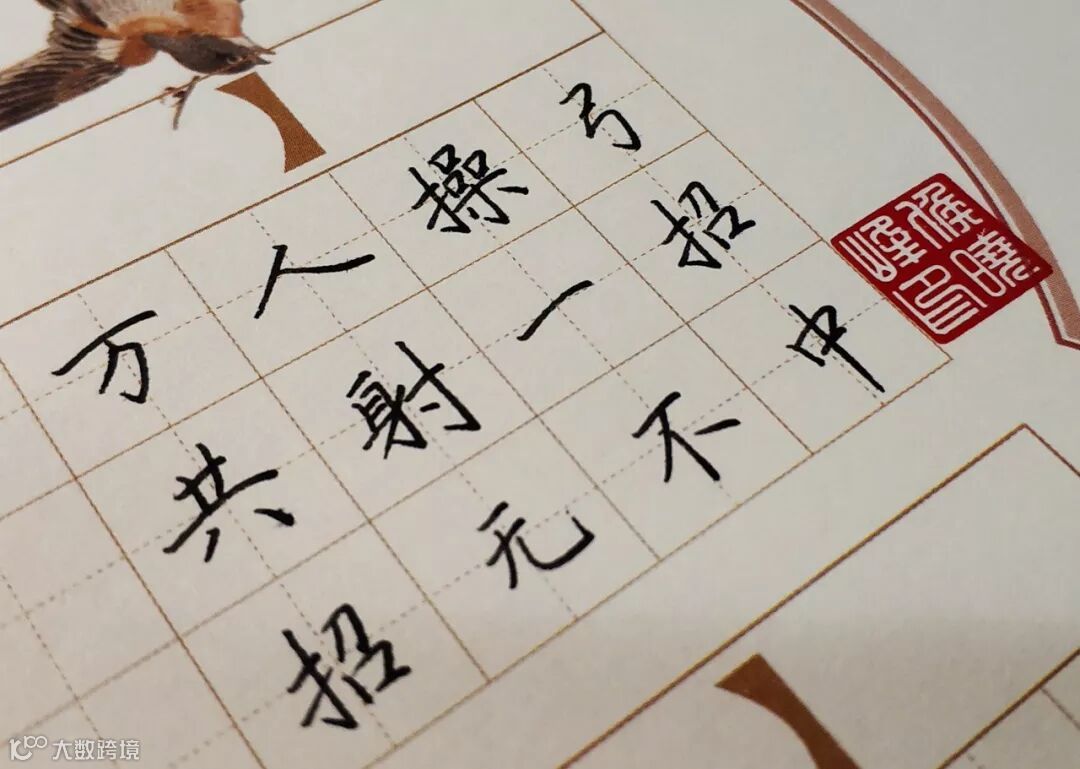 万人操弓
共射一招
招无不中
大数跨境